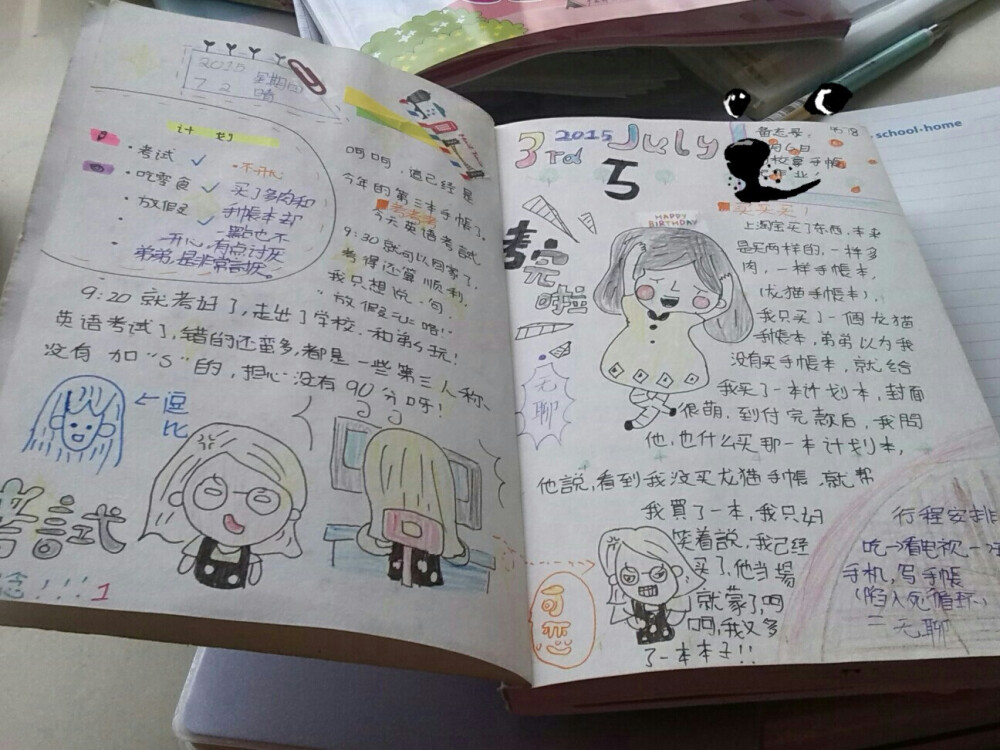 2015
7 2
星期四
晴
计划
·考试 ✓
·吃零食 ✓
·放假 ✓
·不开心
买了多肉和
手帐本却
一點也不
开心,有点讨厌
弟弟,是非常討厌
呵呵,這已经是
今年的第三本手帳了。
今天英语考試,
9:30就可以回家了,
考得还算順利,
我只想说一句
9:20 就考好了,走出了学校,和弟弟玩!
英语考试了,错的还蛮多,都是一些第三人称、
没有加“S”的,担心没有90分呀!
←逗
比
考試
!!!1
3rd 2015 July
5
考完
啦
HAPPY
BIRTHDAY
school·home
买买买!
上淘宝买了东西,本来
是买两样的,一样多
肉,一样手帐本,
(龙猫手帳本),
我只买了一個龙猫
手帐本,弟弟以为我
没有买手帐本,就给
我买了一本计划本,封面
很萌,到付完款后,我問
他,也什么买那一本计划本,
他說,看到我没买龙猫手帳,就帮
我買了一本,我只好
笑着說,我已经
买了,他当場
就蒙了,呵
呵,我又多
了一本本子!!
无
聊
可恶
行程安排
吃→看电视→玩
手机,写手帳
(陷入死循环)
=无聊